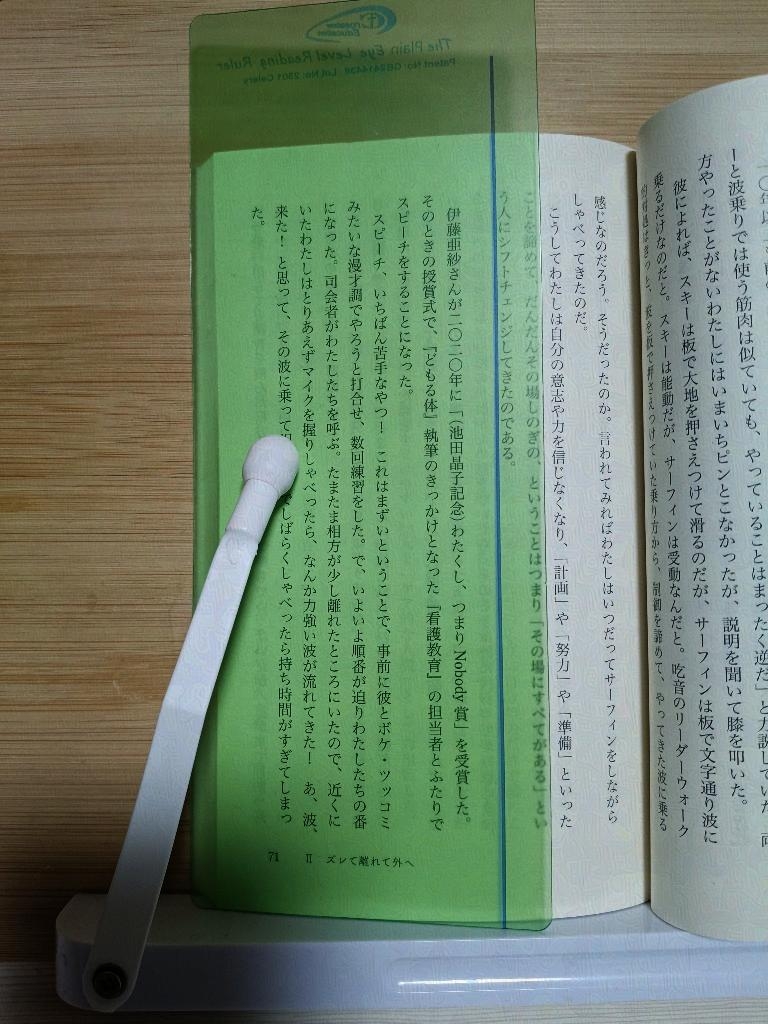 ーと波乗りでは使う筋肉は似ていても、やっていることはまったく逆だ」と力説していた。両
方やったことがないわたしにはいまいちピンとこなかったが、説明を聞いて膝を叩いた。
彼によれば、スキーは板で大地を押さえつけて滑るのだが、サーフィンは板で文字通り波に
乗るだけなのだと。スキーは能動だが、サーフィンは受動なんだと。吃音のリーダーウォーク
的対処はきっと、波を板で押さえつけていた乗り方から、制御を諦めて、やってきた波に乗る
感じなのだろう。そうだったのか。言われてみればわたしはいつだってサーフィンをしながら
しゃべってきたのだ。
こうしてわたしは自分の意志や力を信じなくなり、「計画」や「努力」や「準備」といった
ことを諦めて、だんだんその場しのぎの、ということはつまり「その場にすべてがある」とい
う人にシフトチェンジしてきたのである。
伊藤亜紗さんが二〇二〇年に「(池田晶子記念)わたくし、つまりNobody賞」を受賞した。
そのときの授賞式で、『どもる体』執筆のきっかけとなった『看護教育』の担当者とふたりで
スピーチをすることになった。
スピーチ、いちばん苦手なやつ! これはまずいということで、事前に彼とボケ・ツッコミ
みたいな漫才調でやろうと打合せ、数回練習をした。で、いよいよ順番が迫りわたしたちの番
になった。司会者がわたしたちを呼ぶ。たまたま相方が少し離れたところにいたので、近くに
いたわたしはとりあえずマイクを握りしゃべったら、なんか力強い波が流れてきた! あ、波、
来た! と思って、その波に乗って でしばらくしゃべったら持ち時間がすぎてしまっ
た。
71 Ⅱ ズレて離れて外へ
Crossbow Education
The Plain Eye Level Reading Ruler
Patent No: GB2414438 Lot No: 2501 Celery